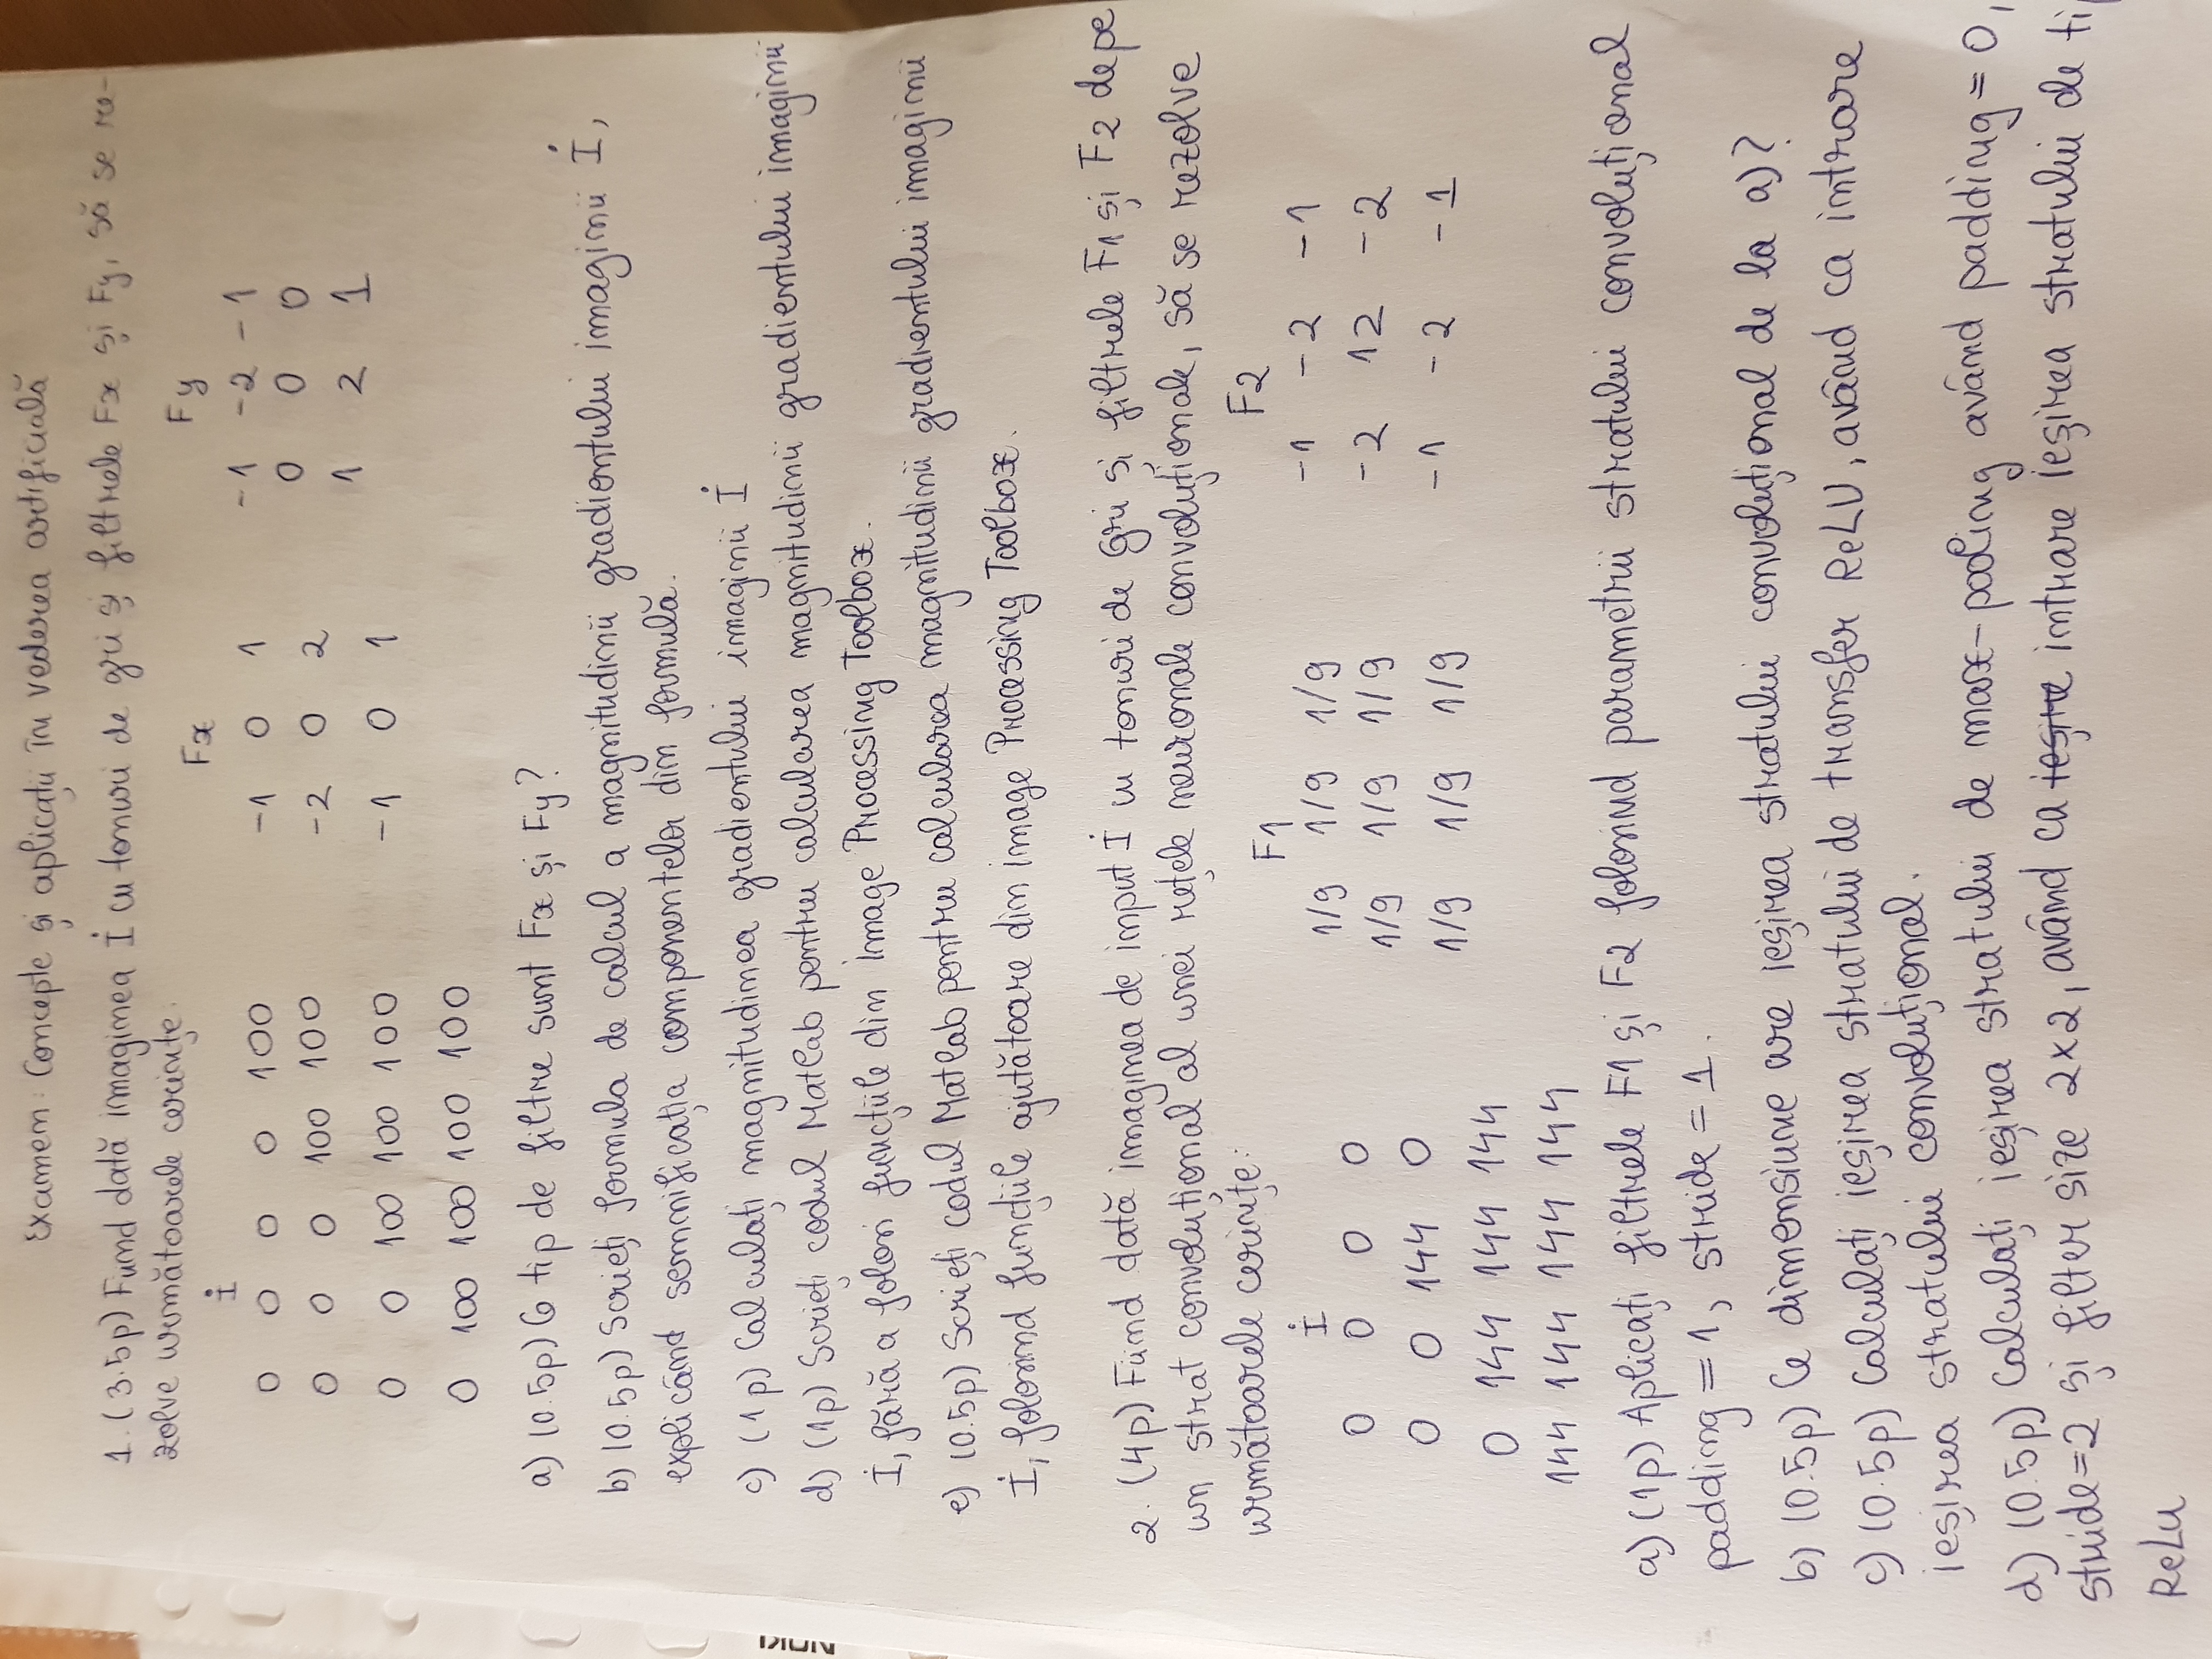 Examen: Concepte și aplicații în vederea artificială
1. (3.5p) Fiind dată imaginea I cu tonuri de gri și filtrele Fx și Fy, să se re-
zolve următoarele cerințe.
I Fx Fy
0 0 0 0 100 -1 0 1 -1 -2 -1
0 0 0 100 100 -2 0 2 0 0 0
0 0 100 100 100 -1 0 1 1 2 1
0 100 100 100 100
a) (0.5p) Ce tip de filtre sunt Fx și Fy?
b) (0.5p) Scrieți formula de calcul a magnitudinii gradientului imaginii I,
explicând semnificația componentelor din formulă.
c) (1p) Calculați magnitudinea gradientului imaginii I
d) (1p) Scrieți codul Matlab pentru calcularea magnitudinii gradientului imaginii
I, fără a folosi funcțiile din Image Processing Toolbox.
e) (0.5p) Scrieți codul Matlab pentru calcularea magnitudinii gradientului imaginii
I, folosind funcțiile ajutătoare din image Processing Toolbox.
2. (4p) Fiind dată imaginea de input I cu tonuri de Gri și filtrele F1 și F2 de pe
un strat convoluțional al unei rețele neuronale convoluționale, să se rezolve
următoarele cerințe:
I F1 F2
0 0 0 0 1/9 1/9 1/9 -1 -2 -1
0 0 144 0 1/9 1/9 1/9 -2 12 -2
0 144 144 144 1/9 1/9 1/9 -1 -2 -1
144 144 144 144
a) (1p) Aplicați filtrele F1 și F2 folosind parametrii stratului convoluțional
padding = 1, stride = 1.
b) (0.5p) Ce dimensiune are ieșirea stratului convoluțional de la a)?
c) (0.5p) Calculați ieșirea stratului de transfer ReLU, având ca intrare
ieșirea stratului convoluțional.
d) (0.5p) Calculați ieșirea stratului de max-pooling având padding = 0,
stride=2 și filter size 2x2, având ca ieșire intrare ieșirea stratului de ti
ReLu